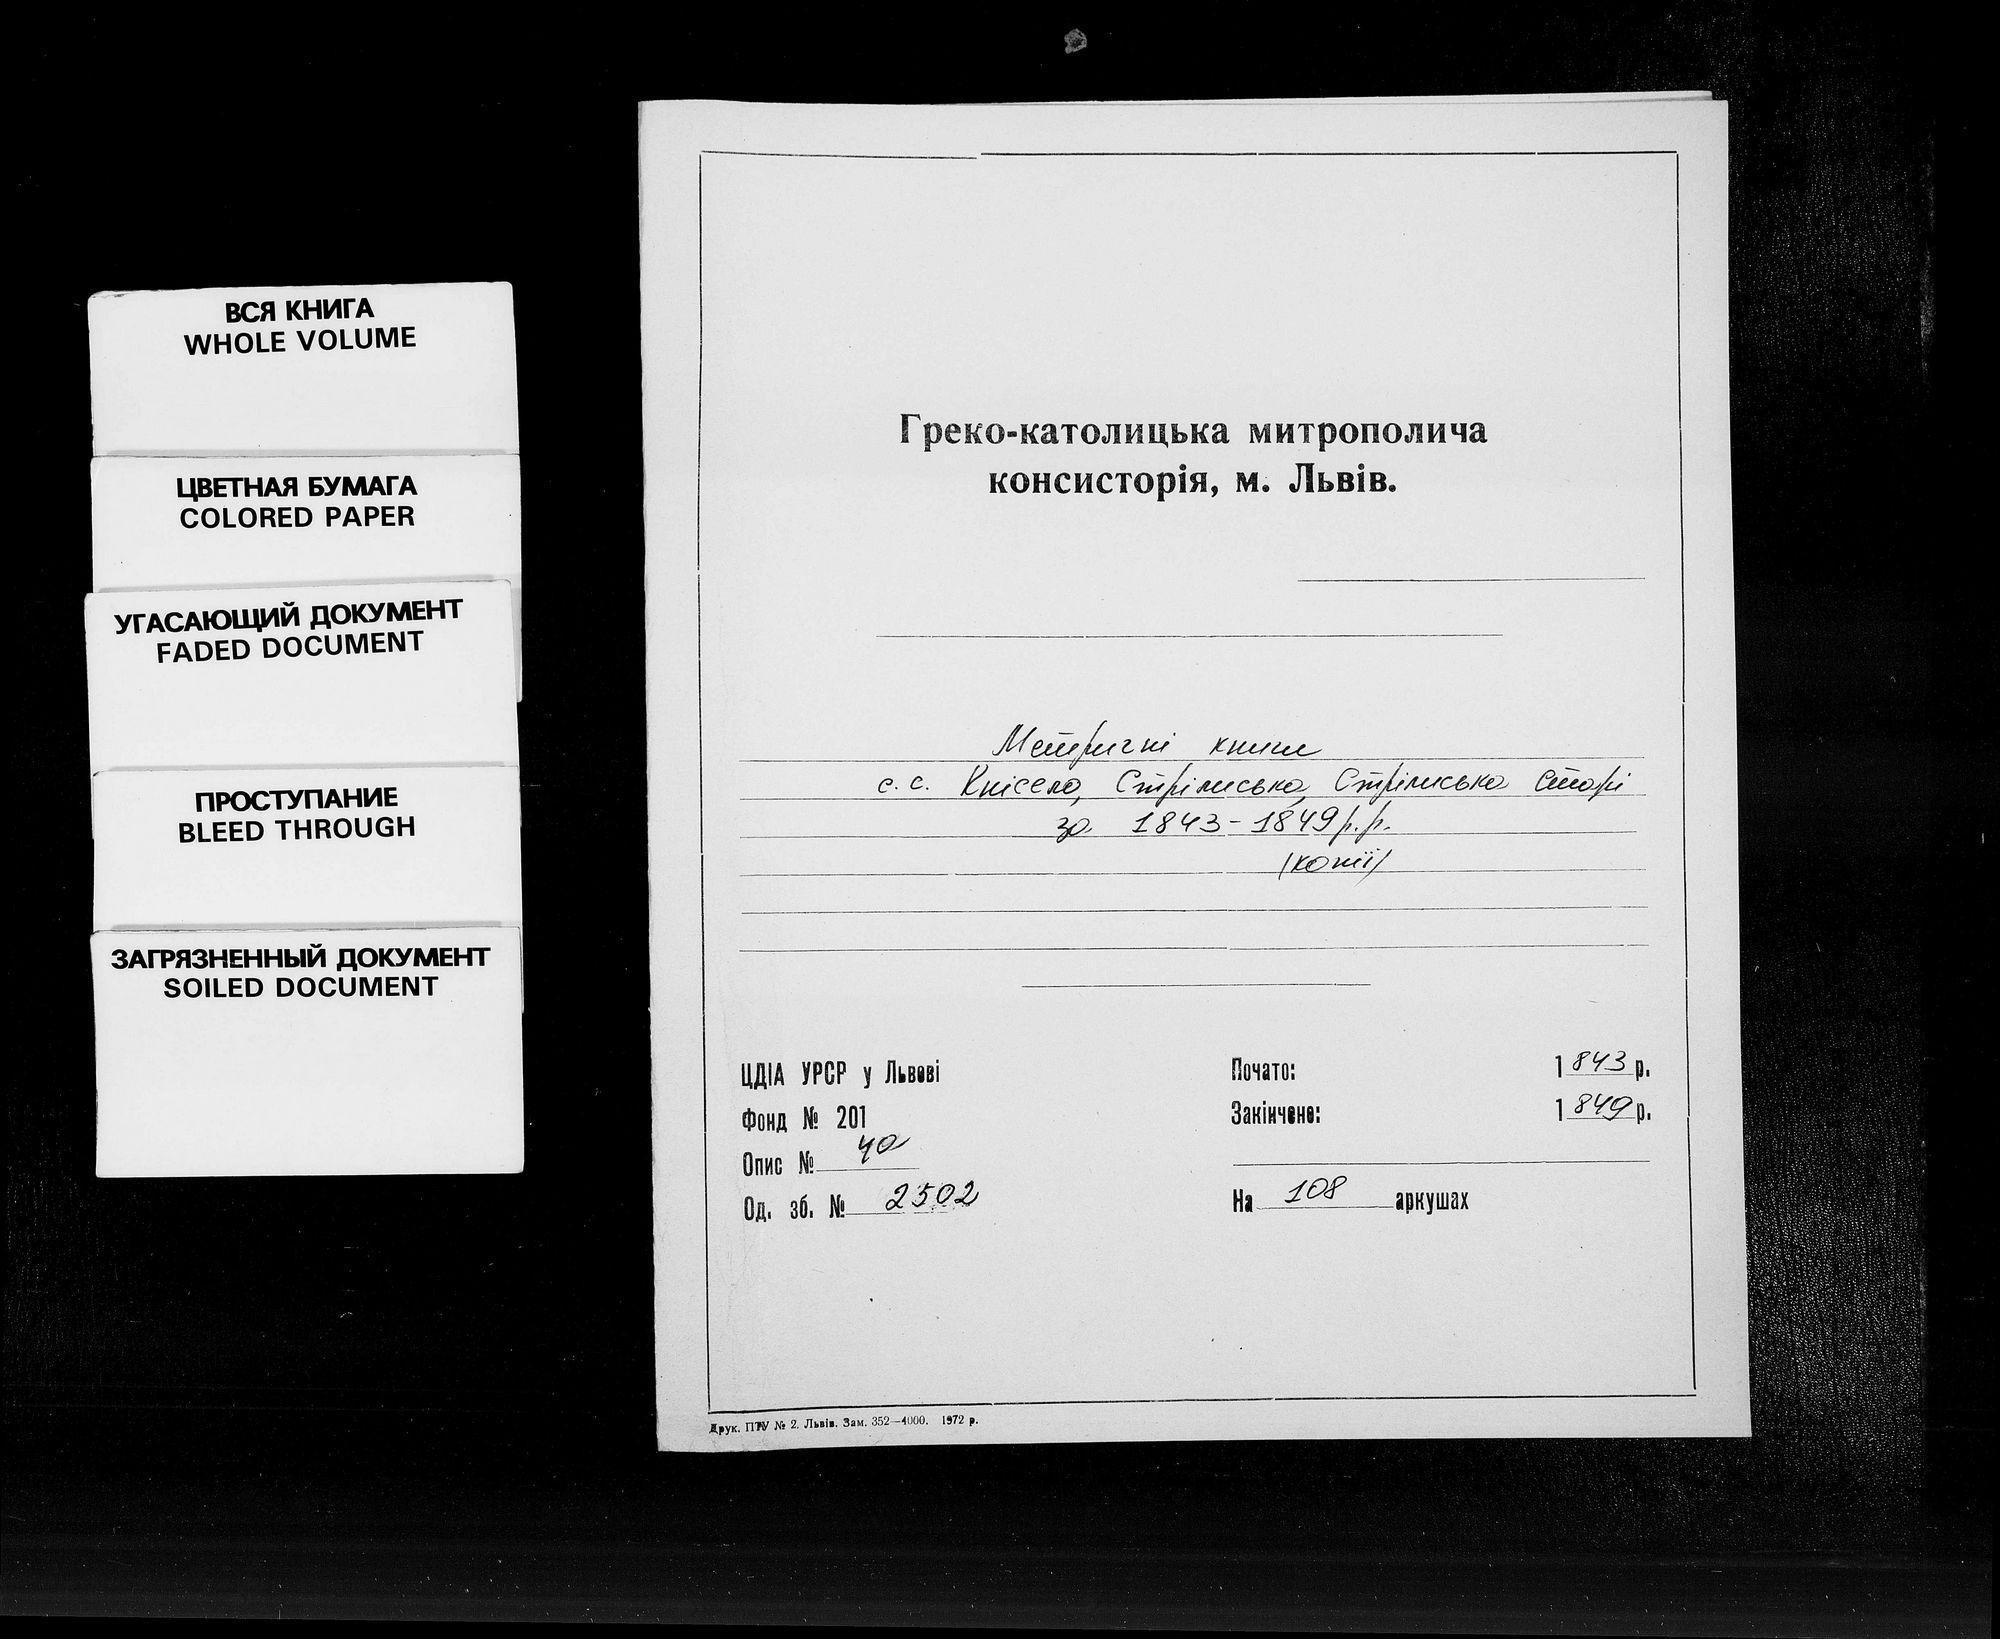 ВСЯ КНИГА
WHOLE VOLUME
ЦВЕТНАЯ БУМАГА
COLORED PAPER
УГАСАЮЩИЙ ДОКУМЕНТ
FADED DOCUMENT
ПРОСТУПАНИЕ
BLEED THROUGH
ЗАГРЯЗНЕННЫЙ ДОКУМЕНТ
SOILED DOCUMENT
Греко-католицька митрополича
консисторія, м. Львів.
Метричні книги
с.с. Кнісело, Стрілисько, Стрілисько Старі
за 1843-1849 р.р.
/копії/
ЦДІА УРСР у Львові
Фонд № 201
Опис № 4а
Од. зб. № 2502
Почато: 1843 р.
Закінчено: 1849 р.
На 108 аркушах
Друк. ПТУ № 2. Львів. Зам. 352—4000. 1972 р.